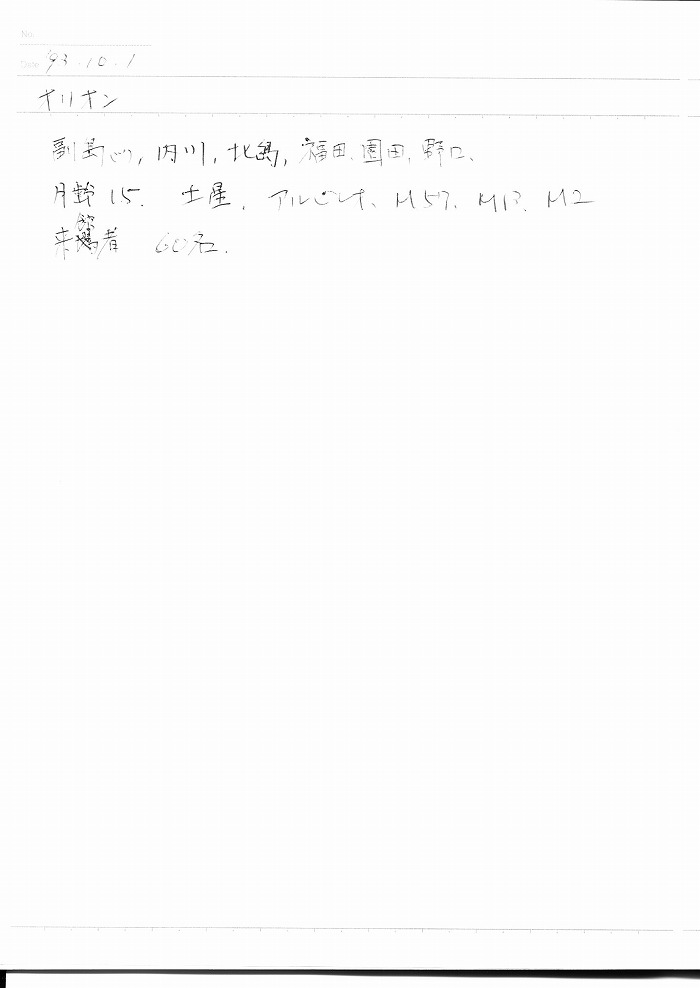 No.
Date '93.10.1
オリオン
副島, 内川, 北島, 福田、園田、野口、
月齢 15. 土星, アルビレオ、M57、M13、M2
来館者 60名.